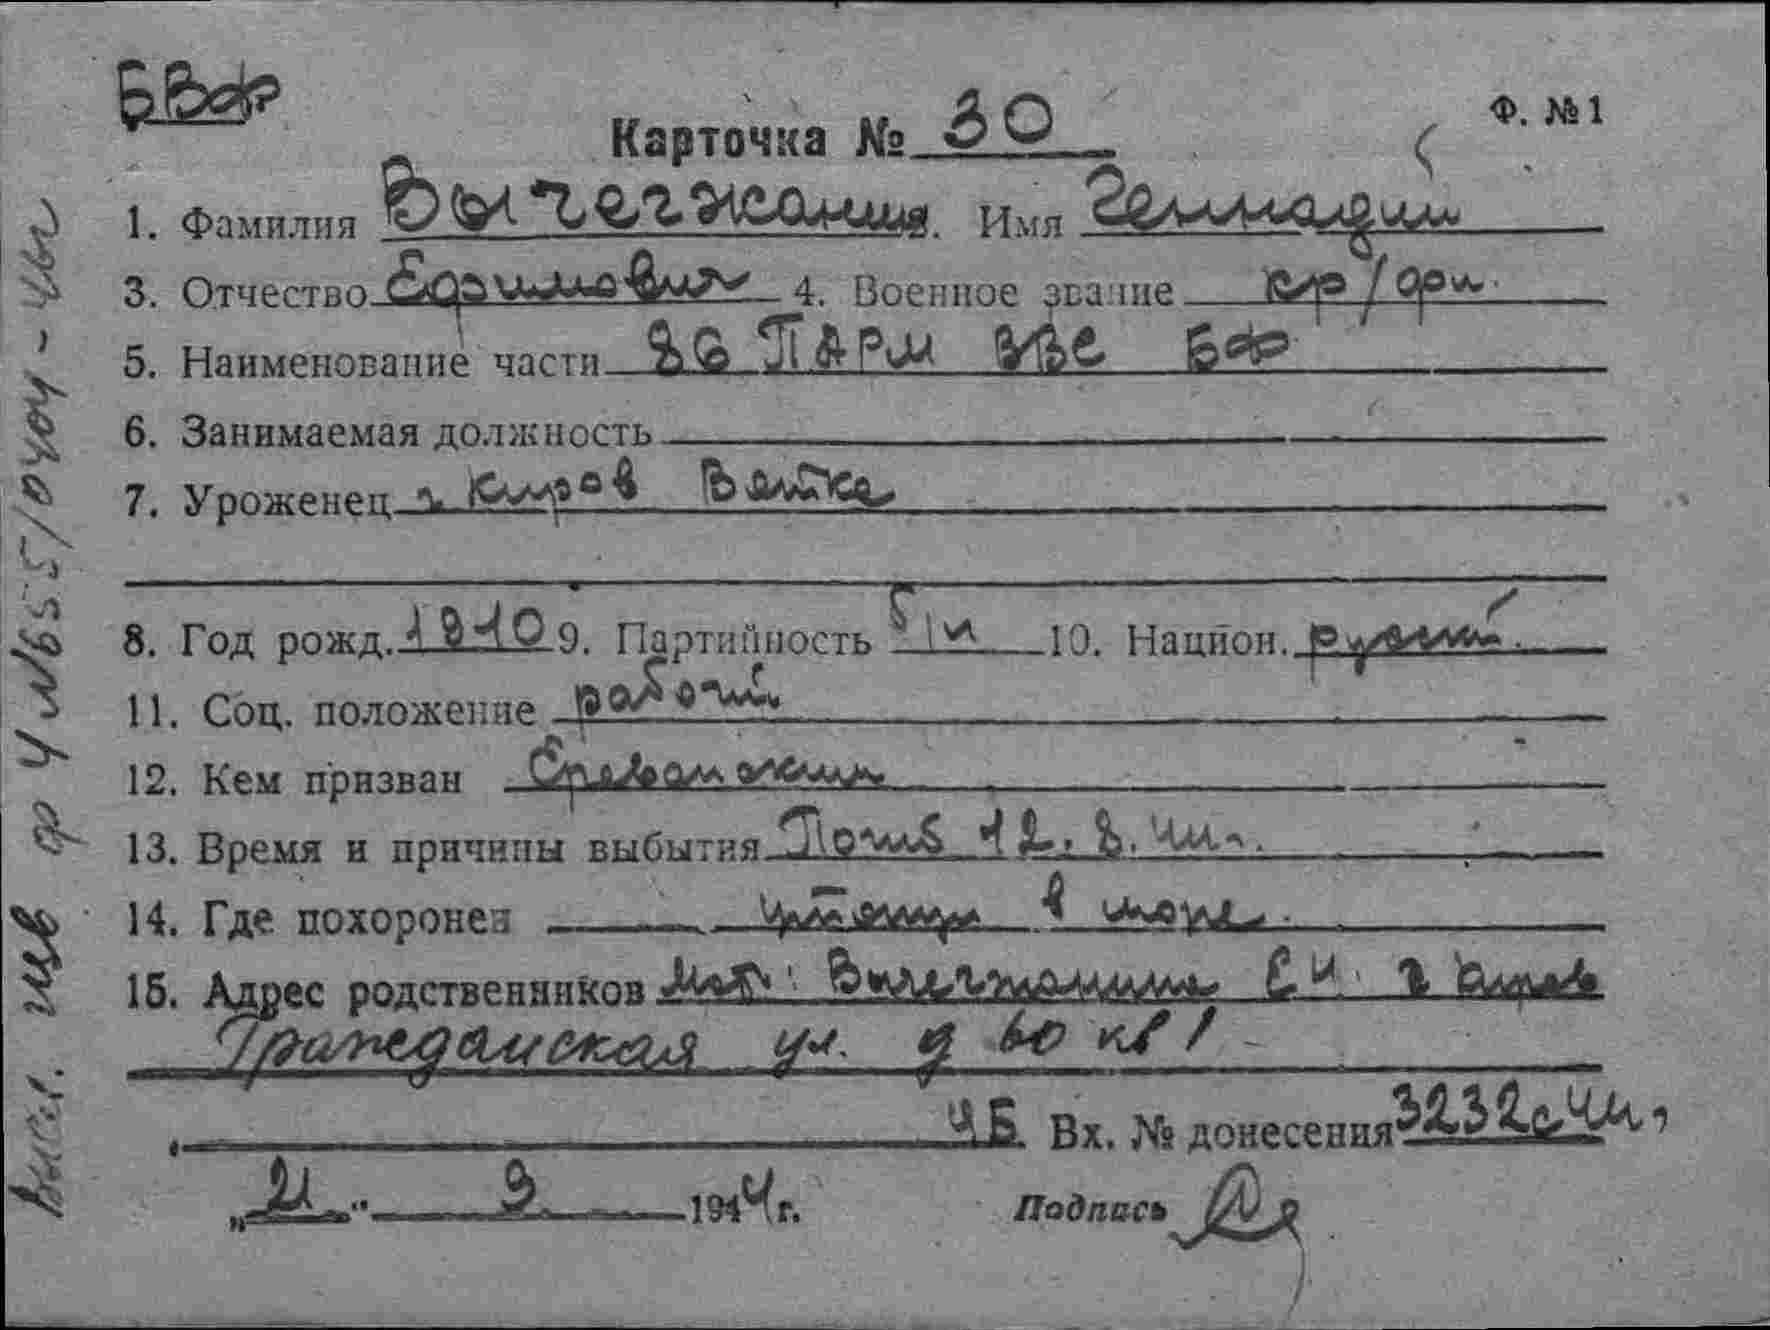 БВФ
Карточка № 30
Ф. № 1
1. Фамилия Вычегжанин. Имя Геннадий
3. Отчество Ефимович 4. Военное звание кр/фл.
5. Наименование части 26 ПАРМ ВВС БФ
6. Занимаемая должность
7. Уроженец г Киров Вятка
8. Год рожд. 1910 9. Партийность б/п 10. Национ. русский.
11. Соц. положение рабочий
12. Кем призван Ереванским
13. Время и причины выбытия Погиб 12.8.44г.
14. Где похоронен утонул в море.
15. Адрес родственников Мать: Вычегжанина Е И. г Киров
Гражданская ул. д 60 кв 1
ЧБ Вх. № донесения 3232с 44г
„21“ 9 1944г.
Подпись